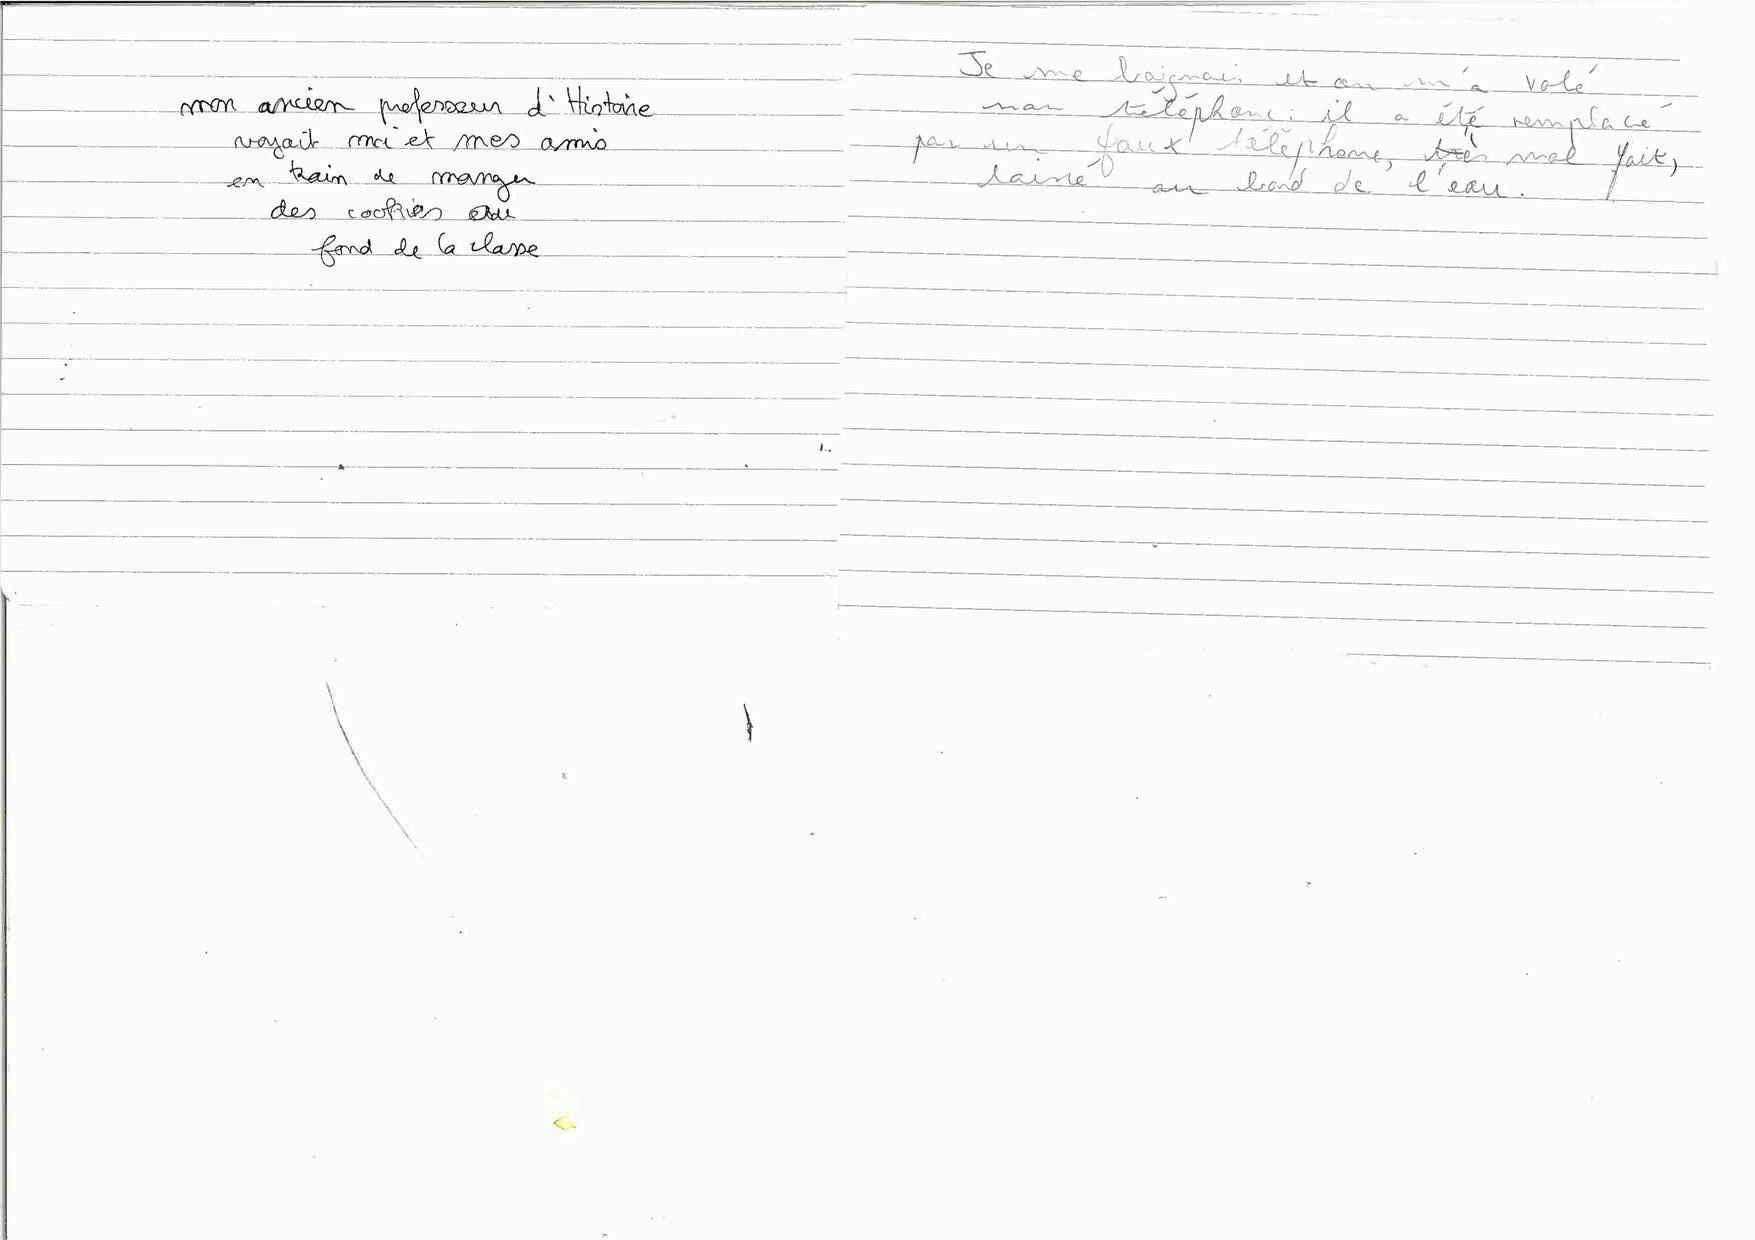 mon ancien professeur d'Histoire
voyait moi et mes amis
en train de manger
des cookies au
fond de la classe
Je me baignais et on m'a volé
mon téléphone : il a été remplacé
par un faux téléphone, très mal fait,
laissé au bord de l'eau.